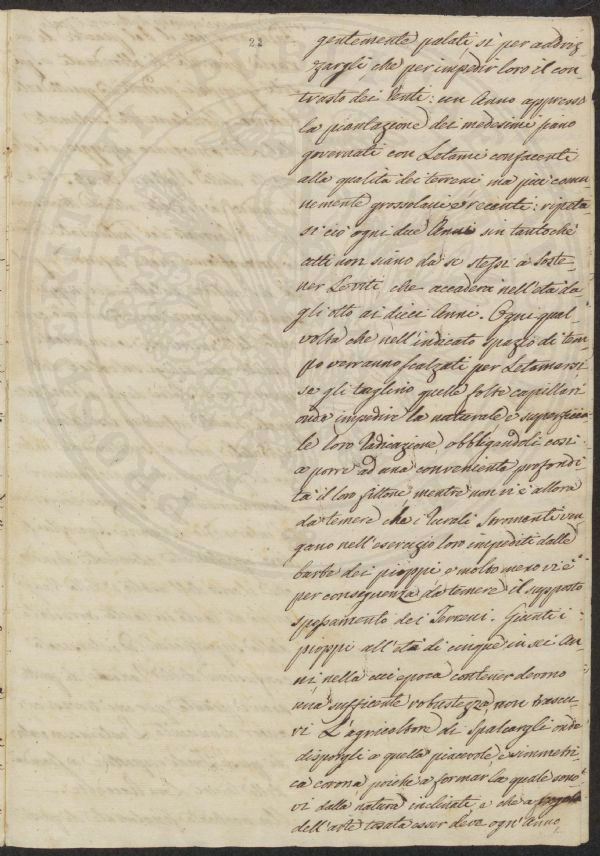 22
gentemente palati sì per addriz
zargli, che per impedir loro il con
trasto dei Venti: un Anno appresso
la piantazione dei medesimi siano
governati con Letami confacenti
alla qualità dei terreni ma più comu
nemente grossolani e recenti: ripeta
si ciò ogni due Anni sin tantochè
atti non siano da se stessi a soste
ner Le viti, che accaderà nell'età da
gli otto ai dieci Anni. Ogni qual
volta che nell'indicato spazio di tem
po verranno scalzati per Letamarsi
se gli taglino quelle folte capillari
onde impedire la naturale e superficia
le loro radicazione obbligandoli così
a porre ad una conveniente profondi
tà il loro fittone mentre non vi è allora
da temere che i Rurali Stromenti ven
gano nell'esercizio loro impediti dalle
barbe dei pioppi e molto meno vi è
per conseguenza da temere il supposto
spossamento dei Terreni. Giunti i
pioppi all'età di cinque in sei An
ni nella cui epoca contener devono
una sufficente robustezza non trascu
ri L'agricoltore di Spalcargli onde
disporgli a quella piacevole e simmetri
ca corona poichè a formar la quale sono
vi dalla natura inclinati, e che a
dell'arte tosata esser deve ogn'Anno
PROPRIETA